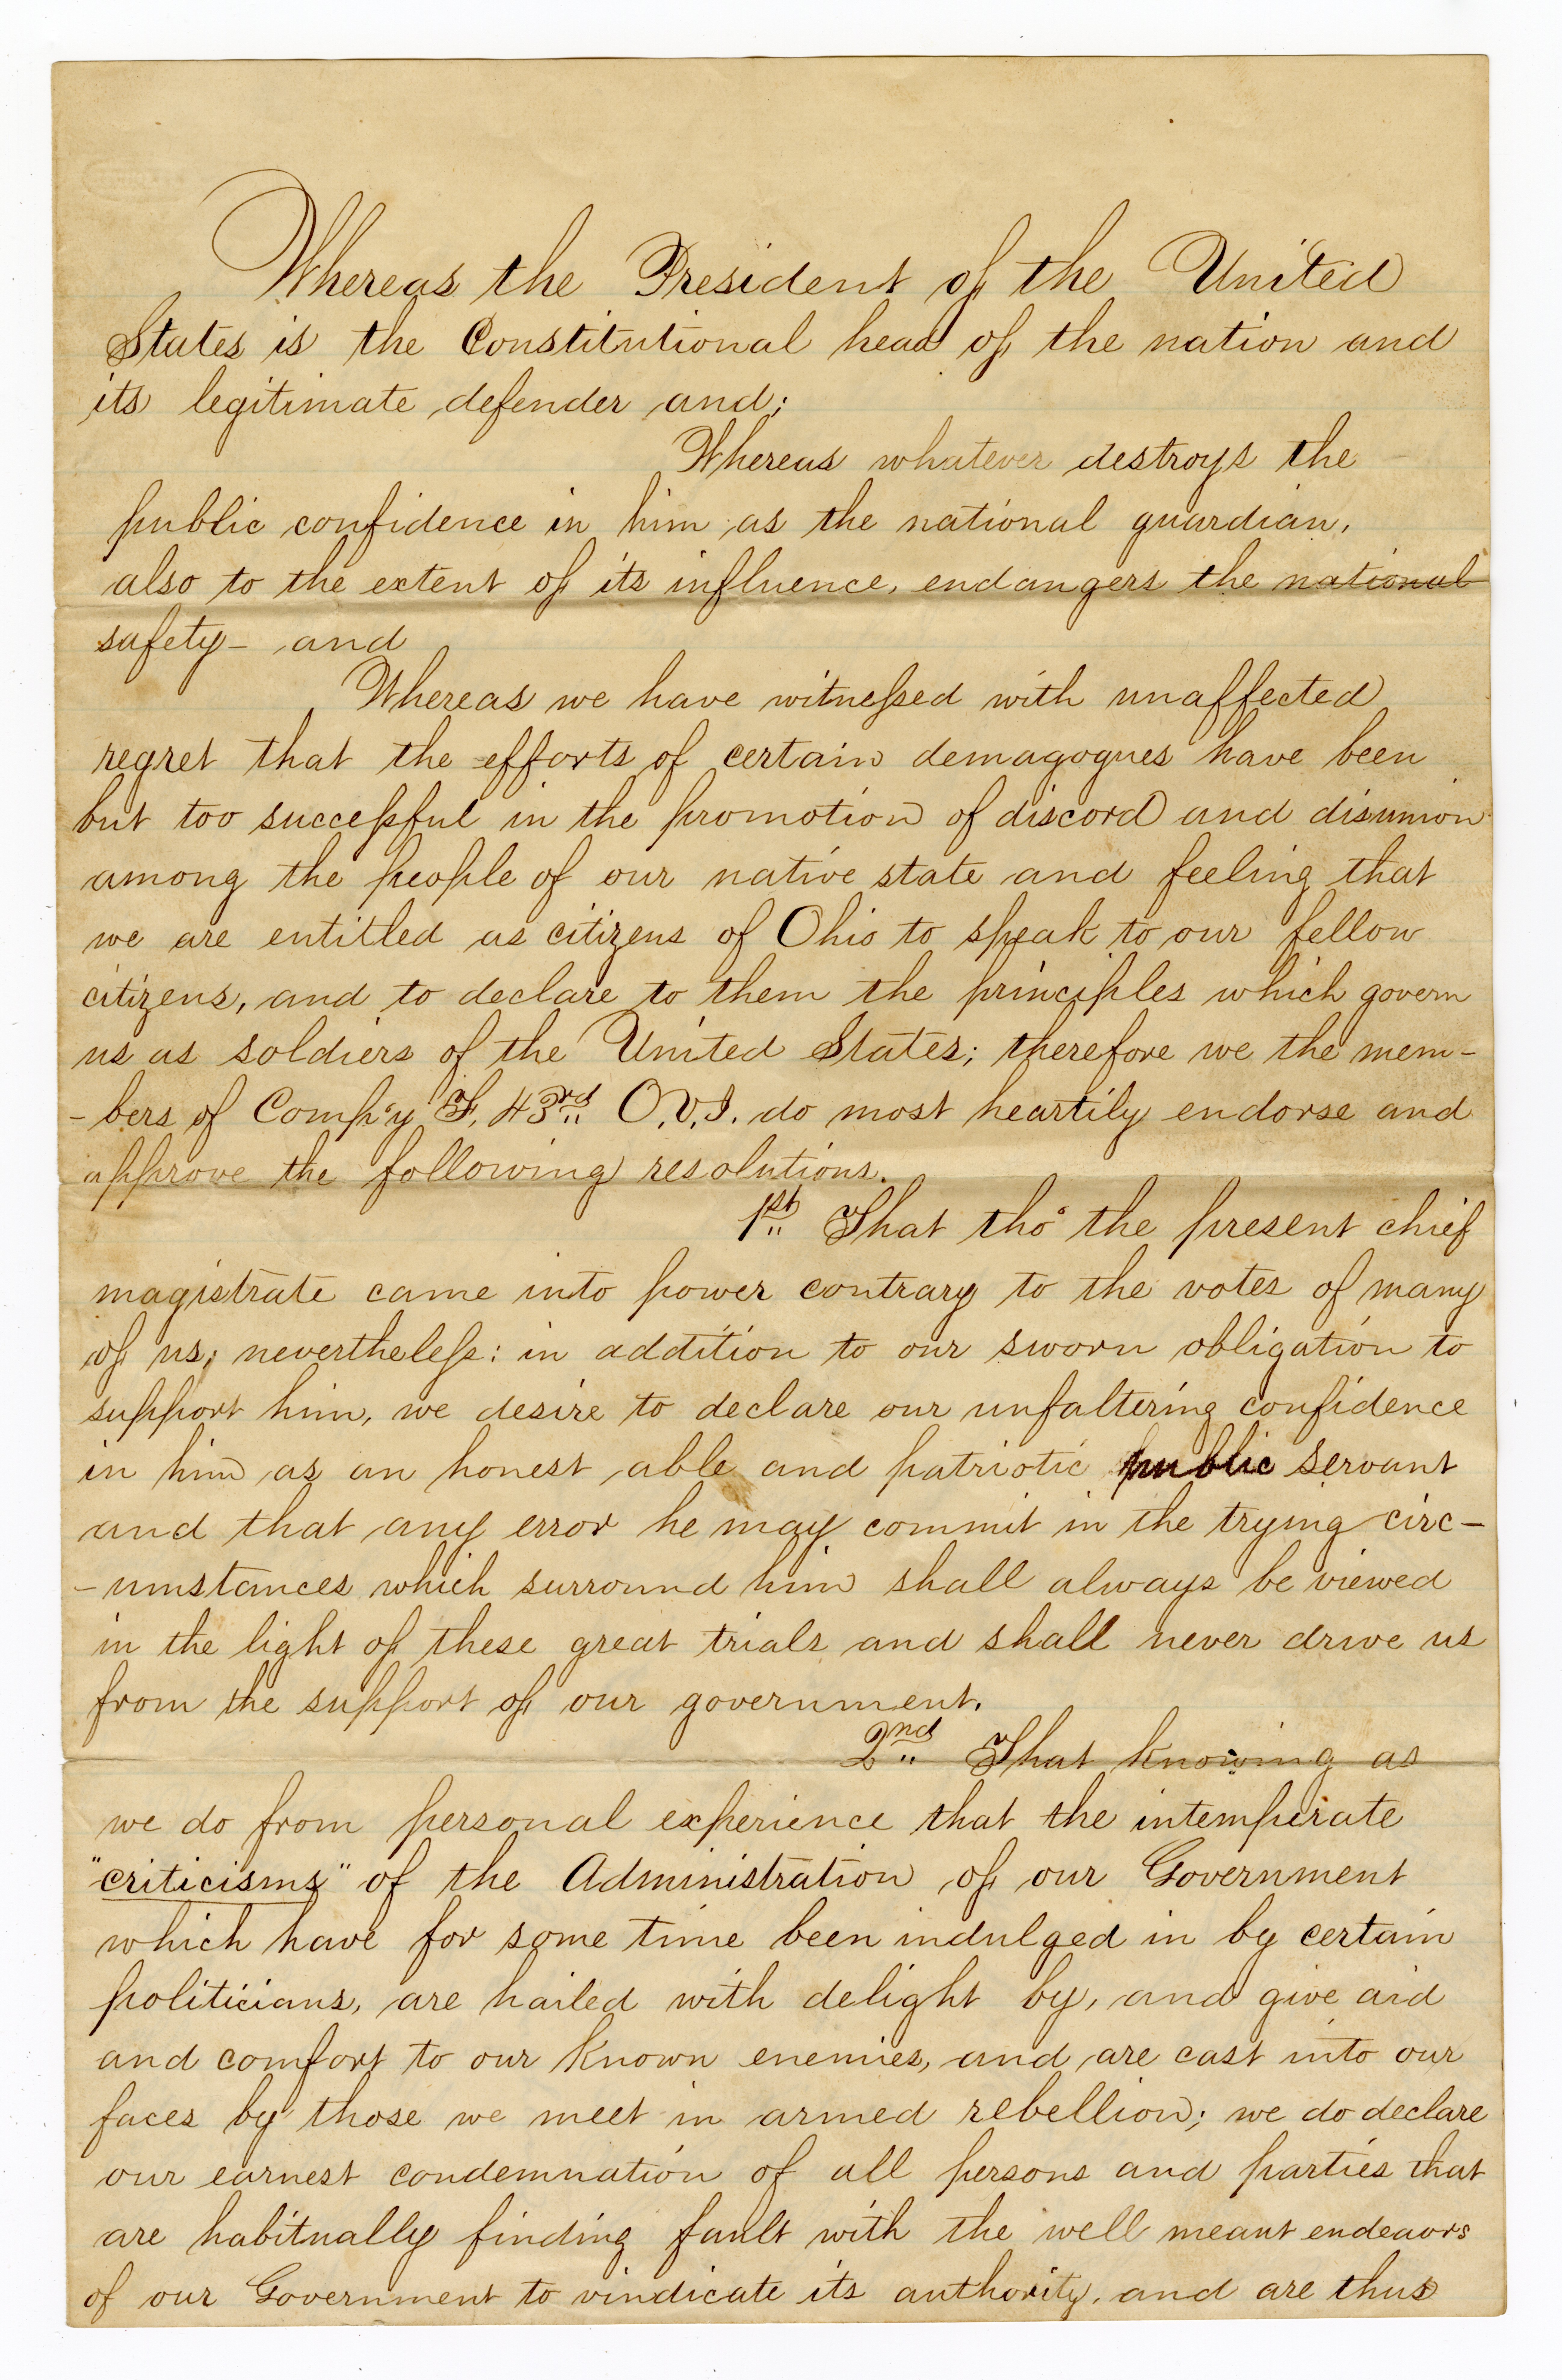 Whereas the President of the United
States is the Constitutional head of the nation and
its legitimate defender and;
Whereas whatever destroys the
public confidence in him as the national guardian,
also to the extent of its influence, endangers the national
safety – and
Whereas we have witnessed with unaffected
regret that the efforts of certain demagogues have been
but too successful in the promotion of discord and disunion
among the people of our native state and feeling that
we are entitled as citizens of Ohio to speak to our fellow
citizens, and to declare to them the principles which govern
us as soldiers of the United States; therefore we the mem-
-bers of Comp'y F, 43rd O.V.I. do most heartily endorse and
approve the following resolutions.
1st That tho' the present chief
magistrate came into power contrary to the votes of many
of us; nevertheless: in addition to our sworn obligation to
support him, we desire to declare our unfaltering confidence
in him as an honest able and patriotic public servant
and that any error he may commit in the trying circ-
-umstances which surround him shall always be viewed
in the light of these great trials and shall never drive us
from the support of our government.
2nd That knowing as
we do from personal experience that the intemperate
"criticisms" of the Administration of our Government
which have for some time been indulged in by certain
politicians, are hailed with delight by, and give aid
and comfort to our known enemies, and are cast into our
faces by those we meet in armed rebellion; we do declare
our earnest condemnation of all persons and parties that
are habitually finding fault with the well meant endeavors
of our Government to vindicate its authority, and are thus